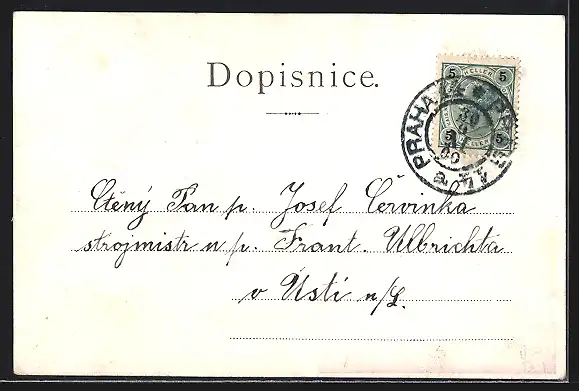 Dopisnice.
5 HELLER 5
5 5
PRAHA
Ctěný Pan p. Josef Červinka
strojmistr u p. Frant. Ullbrichta
v Ústí n/L.